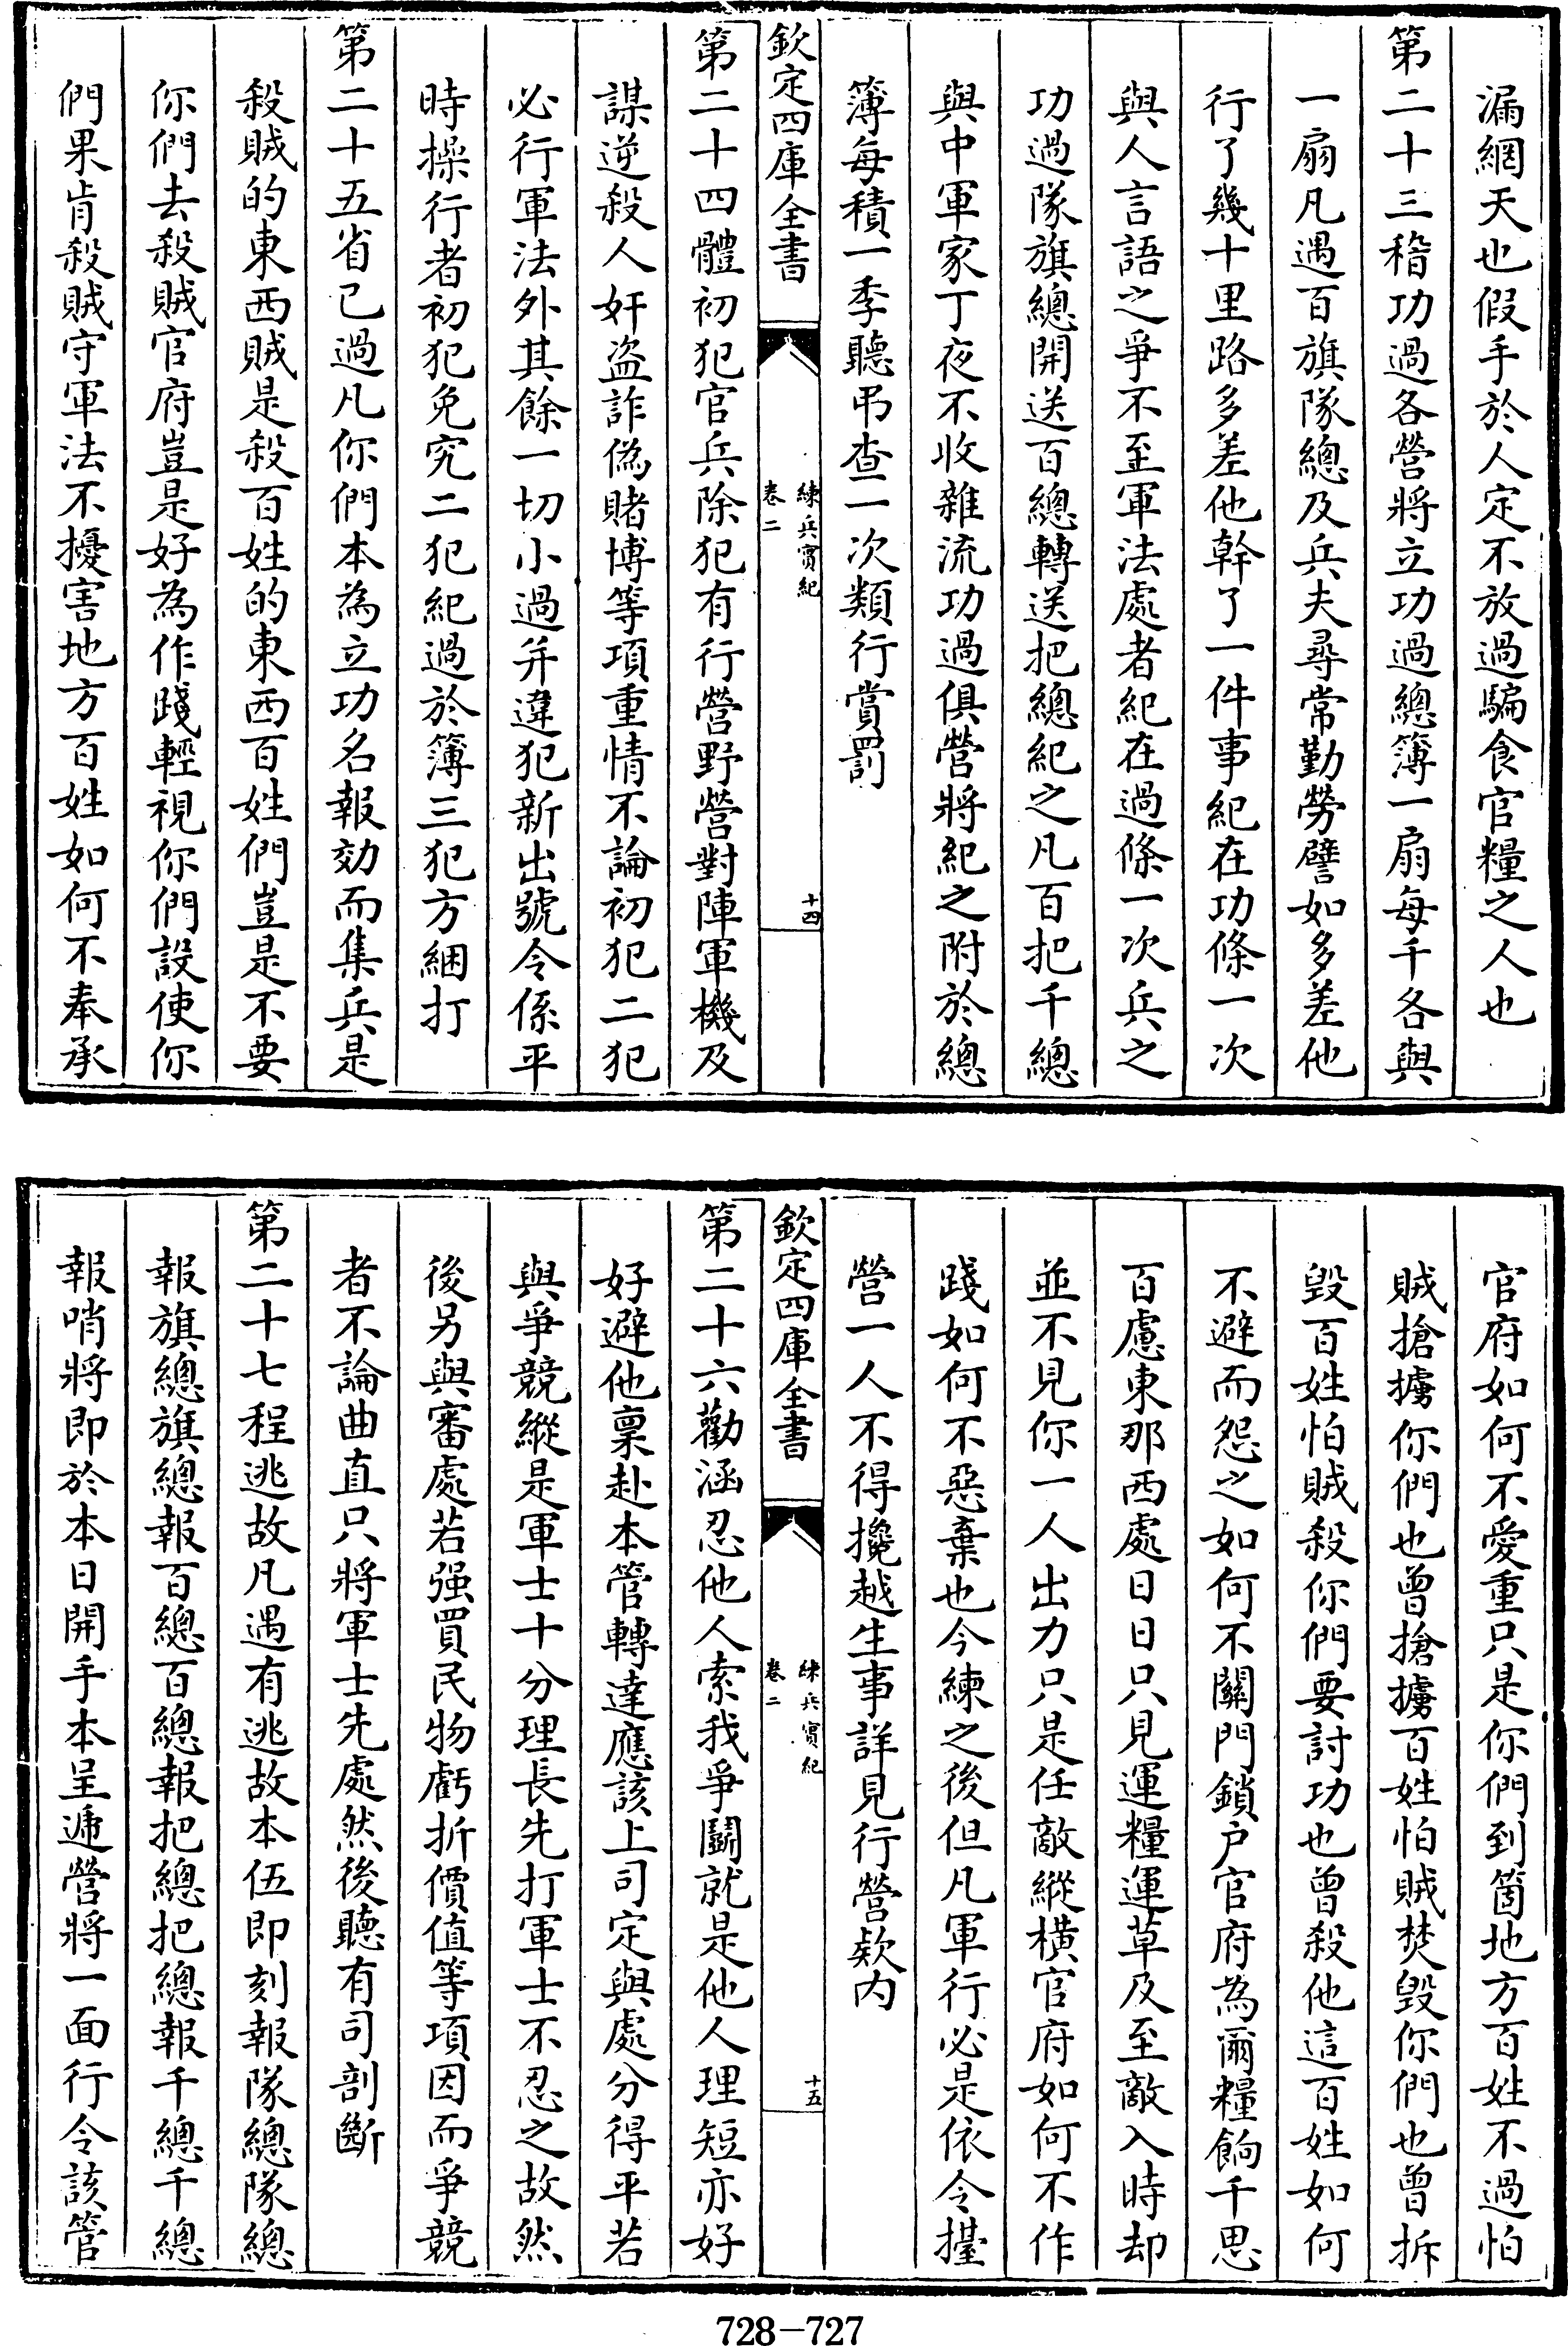 漏網天也假手於人定不放過騙食官糧之人也
第二十三稽功過各營將立功過總簿一扇每千各與
一扇凡遇百旗隊總及兵夫尋常勤勞譬如多差他
行了幾十里路多差他幹了一件事紀在功條一次
與人言語之爭不至軍法處者紀在過條一次兵之
功過隊旗總開送百總轉送把總紀之凡百把千總
與中軍家丁夜不收雜流功過俱營將紀之附於總
簿每積一季聽弔查一次類行賞罰
欽定四庫全書
練兵實紀
卷二
十四
第二十四體初犯官兵除犯有行營野營對陣軍機及
謀逆殺人奸盗詐偽賭博等項重情不論初犯二犯
必行軍法外其餘一切小過并違犯新出號令係平
時操行者初犯免究二犯紀過於簿三犯方綑打
第二十五省已過凡你們本為立功名報効而集兵是
殺賊的東西賊是殺百姓的東西百姓們豈是不要
你們去殺賊官府豈是好為作踐輕視你們設使你
們果肯殺賊守軍法不擾害地方百姓如何不奉承
官府如何不愛重只是你們到箇地方百姓不過怕
賊搶擄你們也曾搶擄百姓怕賊焚毀你們也曾拆
毀百姓怕賊殺你們要討功也曾殺他這百姓如何
不避而怨之如何不關門鎖户官府為爾糧餉千思
百慮東那西處日日只見運糧運草及至敵入時却
並不見你一人出力只是任敵縱橫官府如何不作
踐如何不惡棄也今練之後但凡軍行必是依令擡
營一人不得攙越生事詳見行營欵内
欽定四庫全書
練兵實紀
卷二
十五
第二十六勸涵忍他人索我爭鬭就是他人理短亦好
好避他稟赴本管轉達應該上司定與處分得平若
與爭競縱是軍士十分理長先打軍士不忍之故然
後另與審處若强買民物虧折價值等項因而爭競
者不論曲直只將軍士先處然後聽有司剖斷
第二十七程逃故凡遇有逃故本伍即刻報隊總隊總
報旗總旗總報百總百總報把總把總報千總千總
報哨將即於本日開手本呈遞營將一面行令該管
728-727